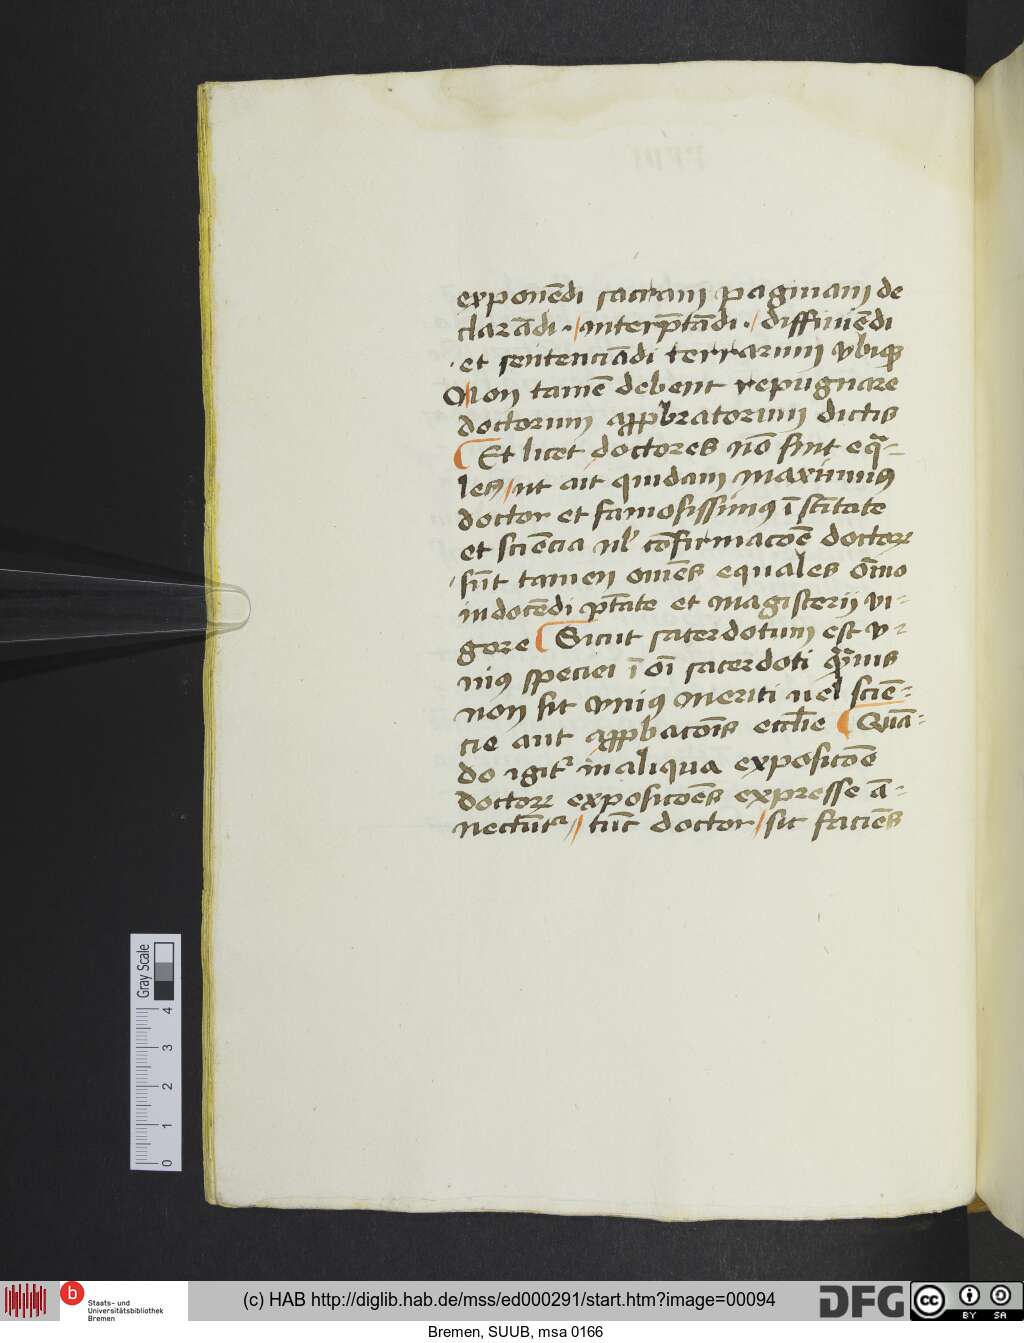 exponēdi sacram paginam de
clarādi · / interp̄tādi · / diffiniēdi
· et sentenciādi terrarum vbiqꝫ
Non tamē debent repugnare
doctorum apꝓbatorum dictis
Et licet doctores nō sint eq̄-
les / ut ait quidam maximus
doctor et famosissimꝯ ī sc̄itate
et sciēcia nł cōfirmacōe doctoꝝ
· sūt tamen om̄es equales om̄īo
in docēdi p̄tate et magisterij vi-
gore Sicut sacerdotum est v-
niꝯ speciei ī oī sacerdoti q̄mvis
non sit vniꝯ meriti uel sciē-
cie aut apꝓbacōis eccl̄ie Quā-
do igit᷑ in aliqua exposicōe
doctoꝝ exposicōes expresse ā-
nectūt᷑ // tūc doctor / sit faciēs
Gray Scale
4
3
2
1
0
b
Staats- und
Universitätsbibliothek
Bremen
(c) HAB http://diglib.hab.de/mss/ed000291/start.htm?image=00094
DFG
cc
BY SA
Bremen, SUUB, msa 0166